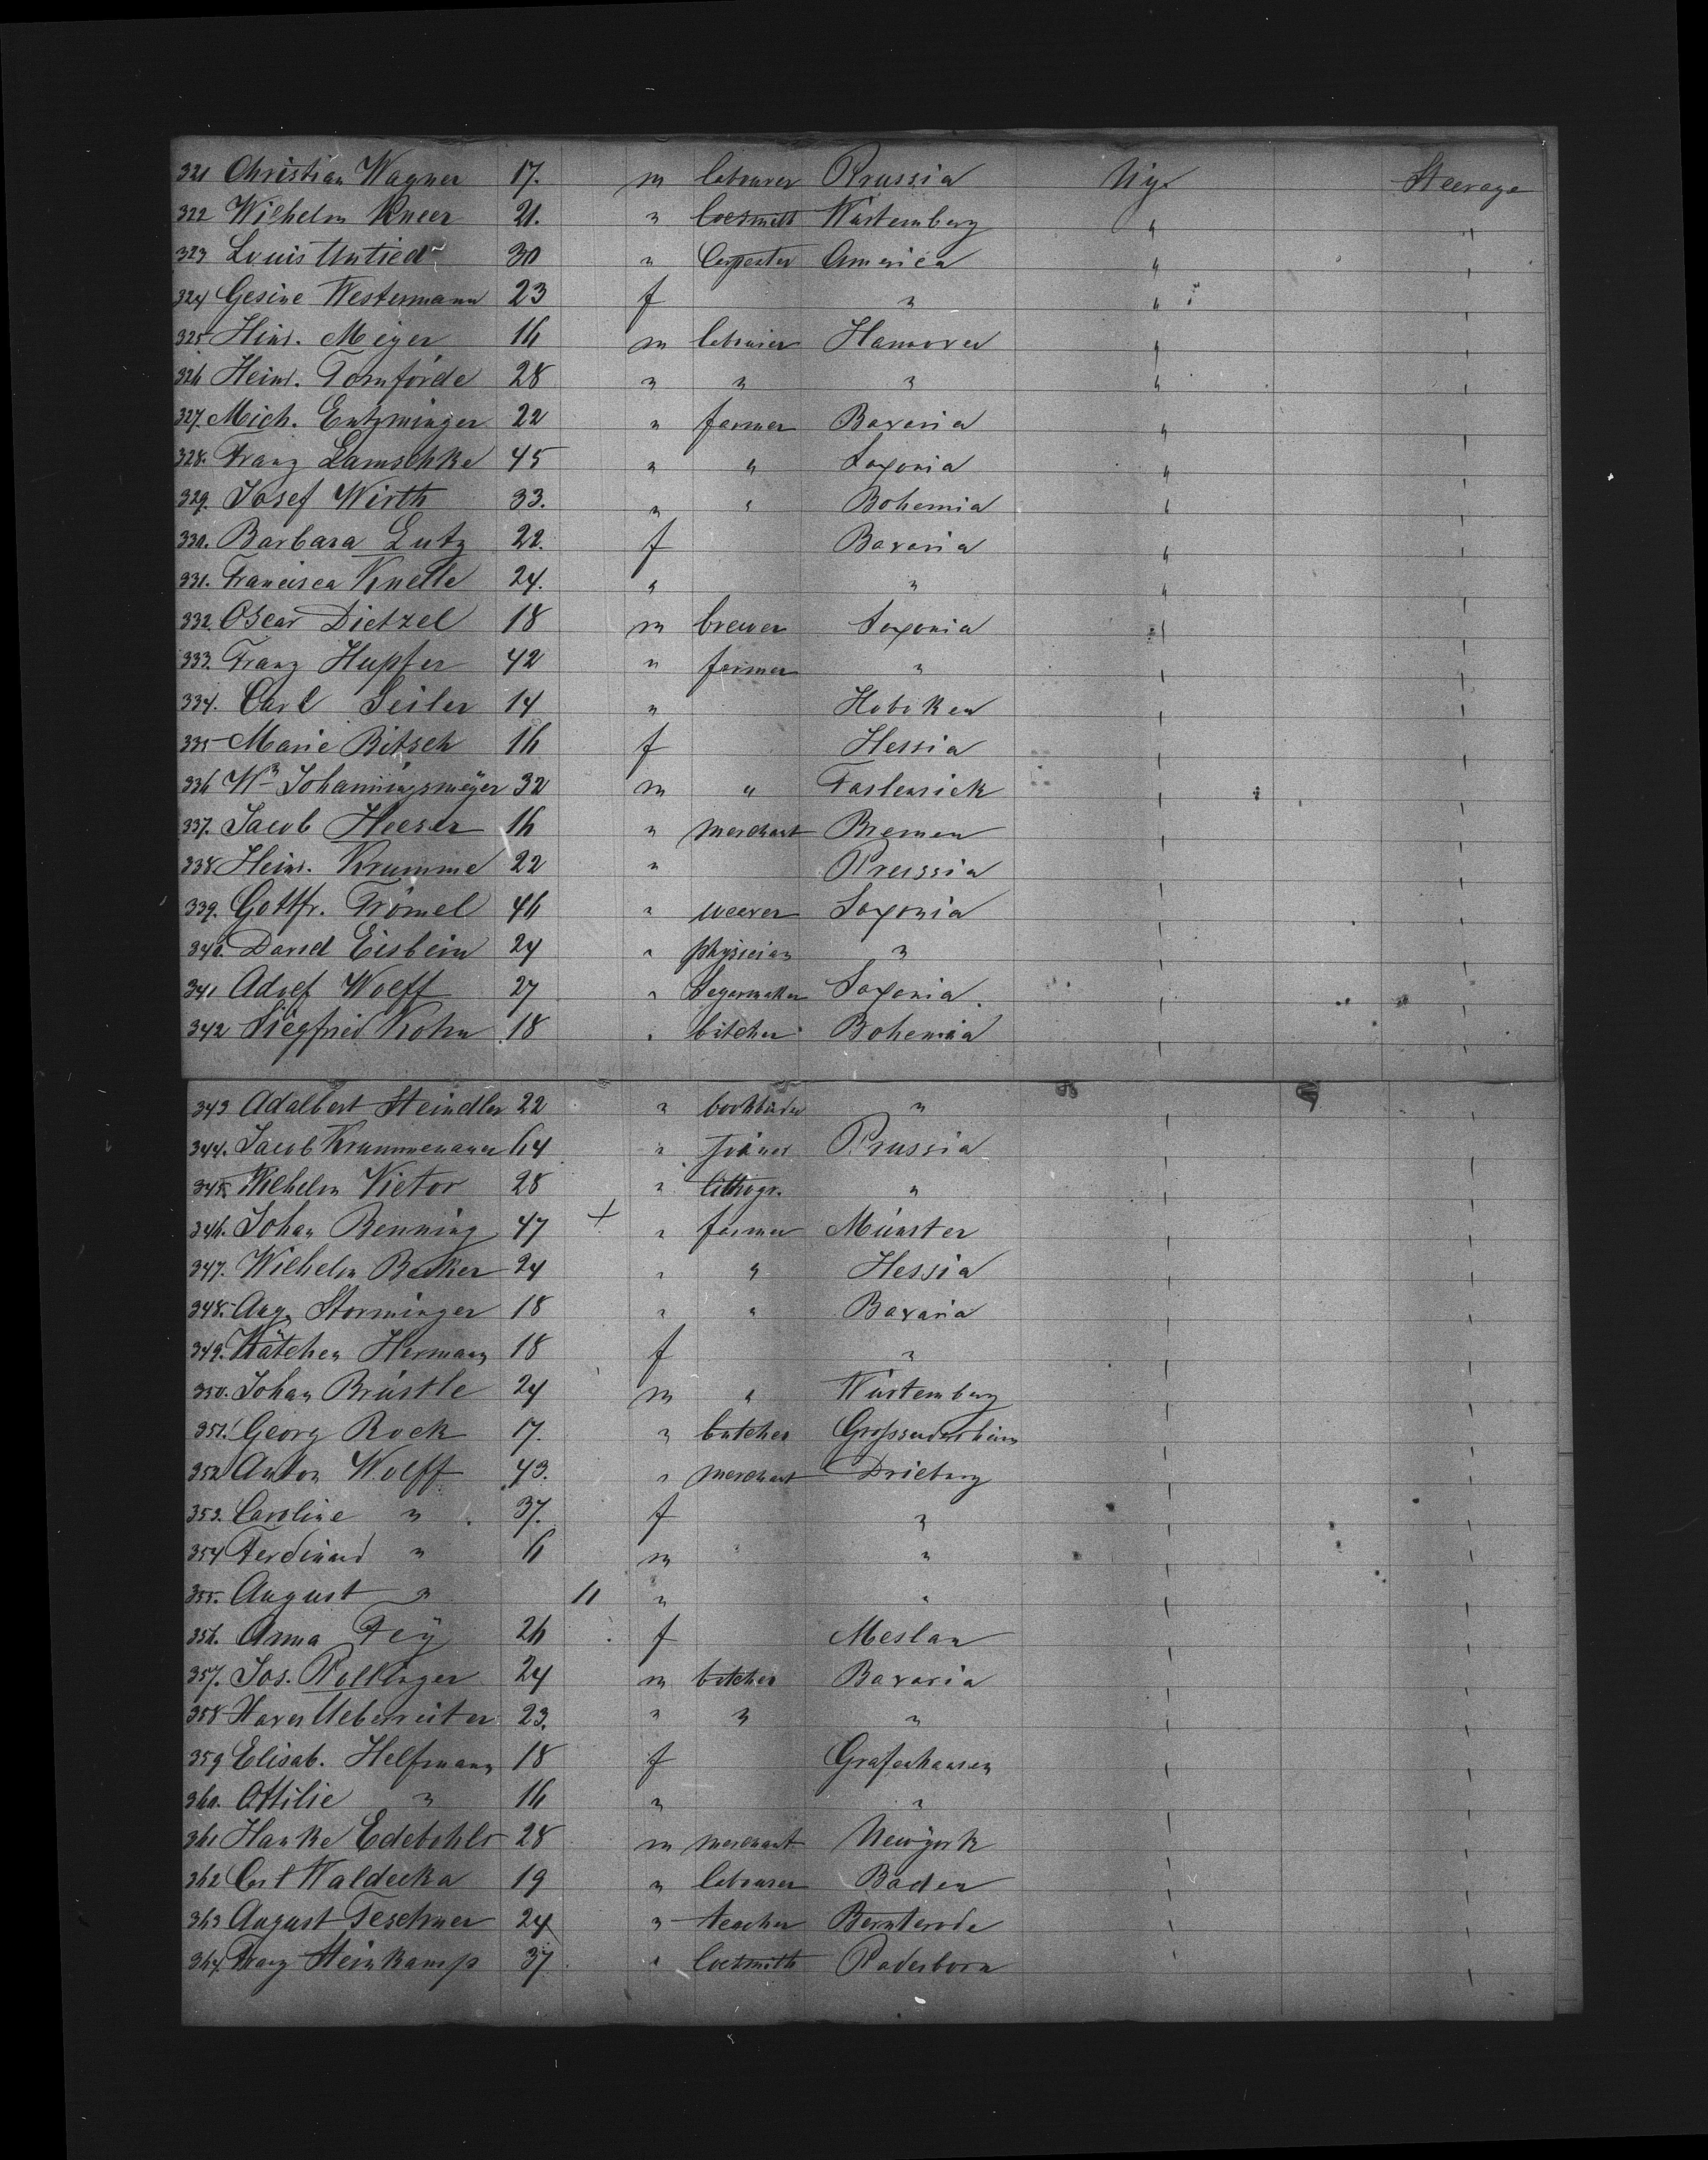 321 Christian Wagner 17. m labourer Prussia N.y. Steerage
322 Wilhelm Kneer 21. " locsmith Würtemberg " "
323 Louis Untied 30 " Carpenter America " "
324 Gesine Westermann 23 f " " "
325 Hinr. Meyer 16 m labourer Hannover " "
326 Heinr. Tornförde 28 " " " " "
327. Mich. Entzminger 22 " farmer Bavaria " "
328. Franz Lamschke 45 " " Saxonia " "
329. Josef Wirth 33. " " Bohemia " "
330. Barbara Lutz 22. f Bavaria " "
331. Francisca Knelle 24. " " " "
332. Oscar Dietzel 18 m brewer Saxonia " "
333. Franz Hupfer 42 " farmer " " "
334. Carl Seiler 14 " Hoboken " "
335 Marie Bitsch 16 f Hessia " "
336 Wm Johanningsmeyer 32 m " " "
337. Jacob Heeser 16 " merchant Bremen " "
338 Heinr. Krumme 22 " Preussia " "
339. Gottfr. Frömel 46 " weaver Saxonia " "
340. David Eisbein 24 " physician " " "
341 Adolf Wolff 27 " Segarmaker Saxonia. " "
342 Siegfried Kohn 18 " butcher Bohemia " "
343 Adalbert Steindler 22 " bookbinder " " "
344. Jacob Krummenauer 64 " joiner Prussia " "
345 Wilhelm Vietor 28 " lithogr. " " "
346. Johan Benning 47 + " farmer Münster " "
347. Wilhelm Becker 24 " " Hessia " "
348. Aug. Storminger 18 " " Bavaria " "
349. Kätchen Hermann 18 f " " "
350. Johan Brüstle 24 m " Würtemberg " "
351. Georg Rock 17. " butcher " "
352 Anton Wolff 43. " merchant Driburg " "
353. Caroline " 37. f " " "
354 Ferdinand " 6 m " " "
355. August " 11 " " " "
356. Anna Fey 26 f Meslau " "
357. Jos. Pollinger 24 m butcher Bavaria " "
358 Xaver Ueberreiter 23. " " " " "
359 Elisab. Helfmann 18 f Grafenhausen " "
360. Ottilie " 16 " " " "
361 Hanke Edebohls 28 m merchant Newyork " "
362 Carl Waldecka 19 " labourer Baden " "
363 August Teschner 24 " teacher Bernterode " "
364. Franz Steinkamp 37 " locsmith Paderborn " "